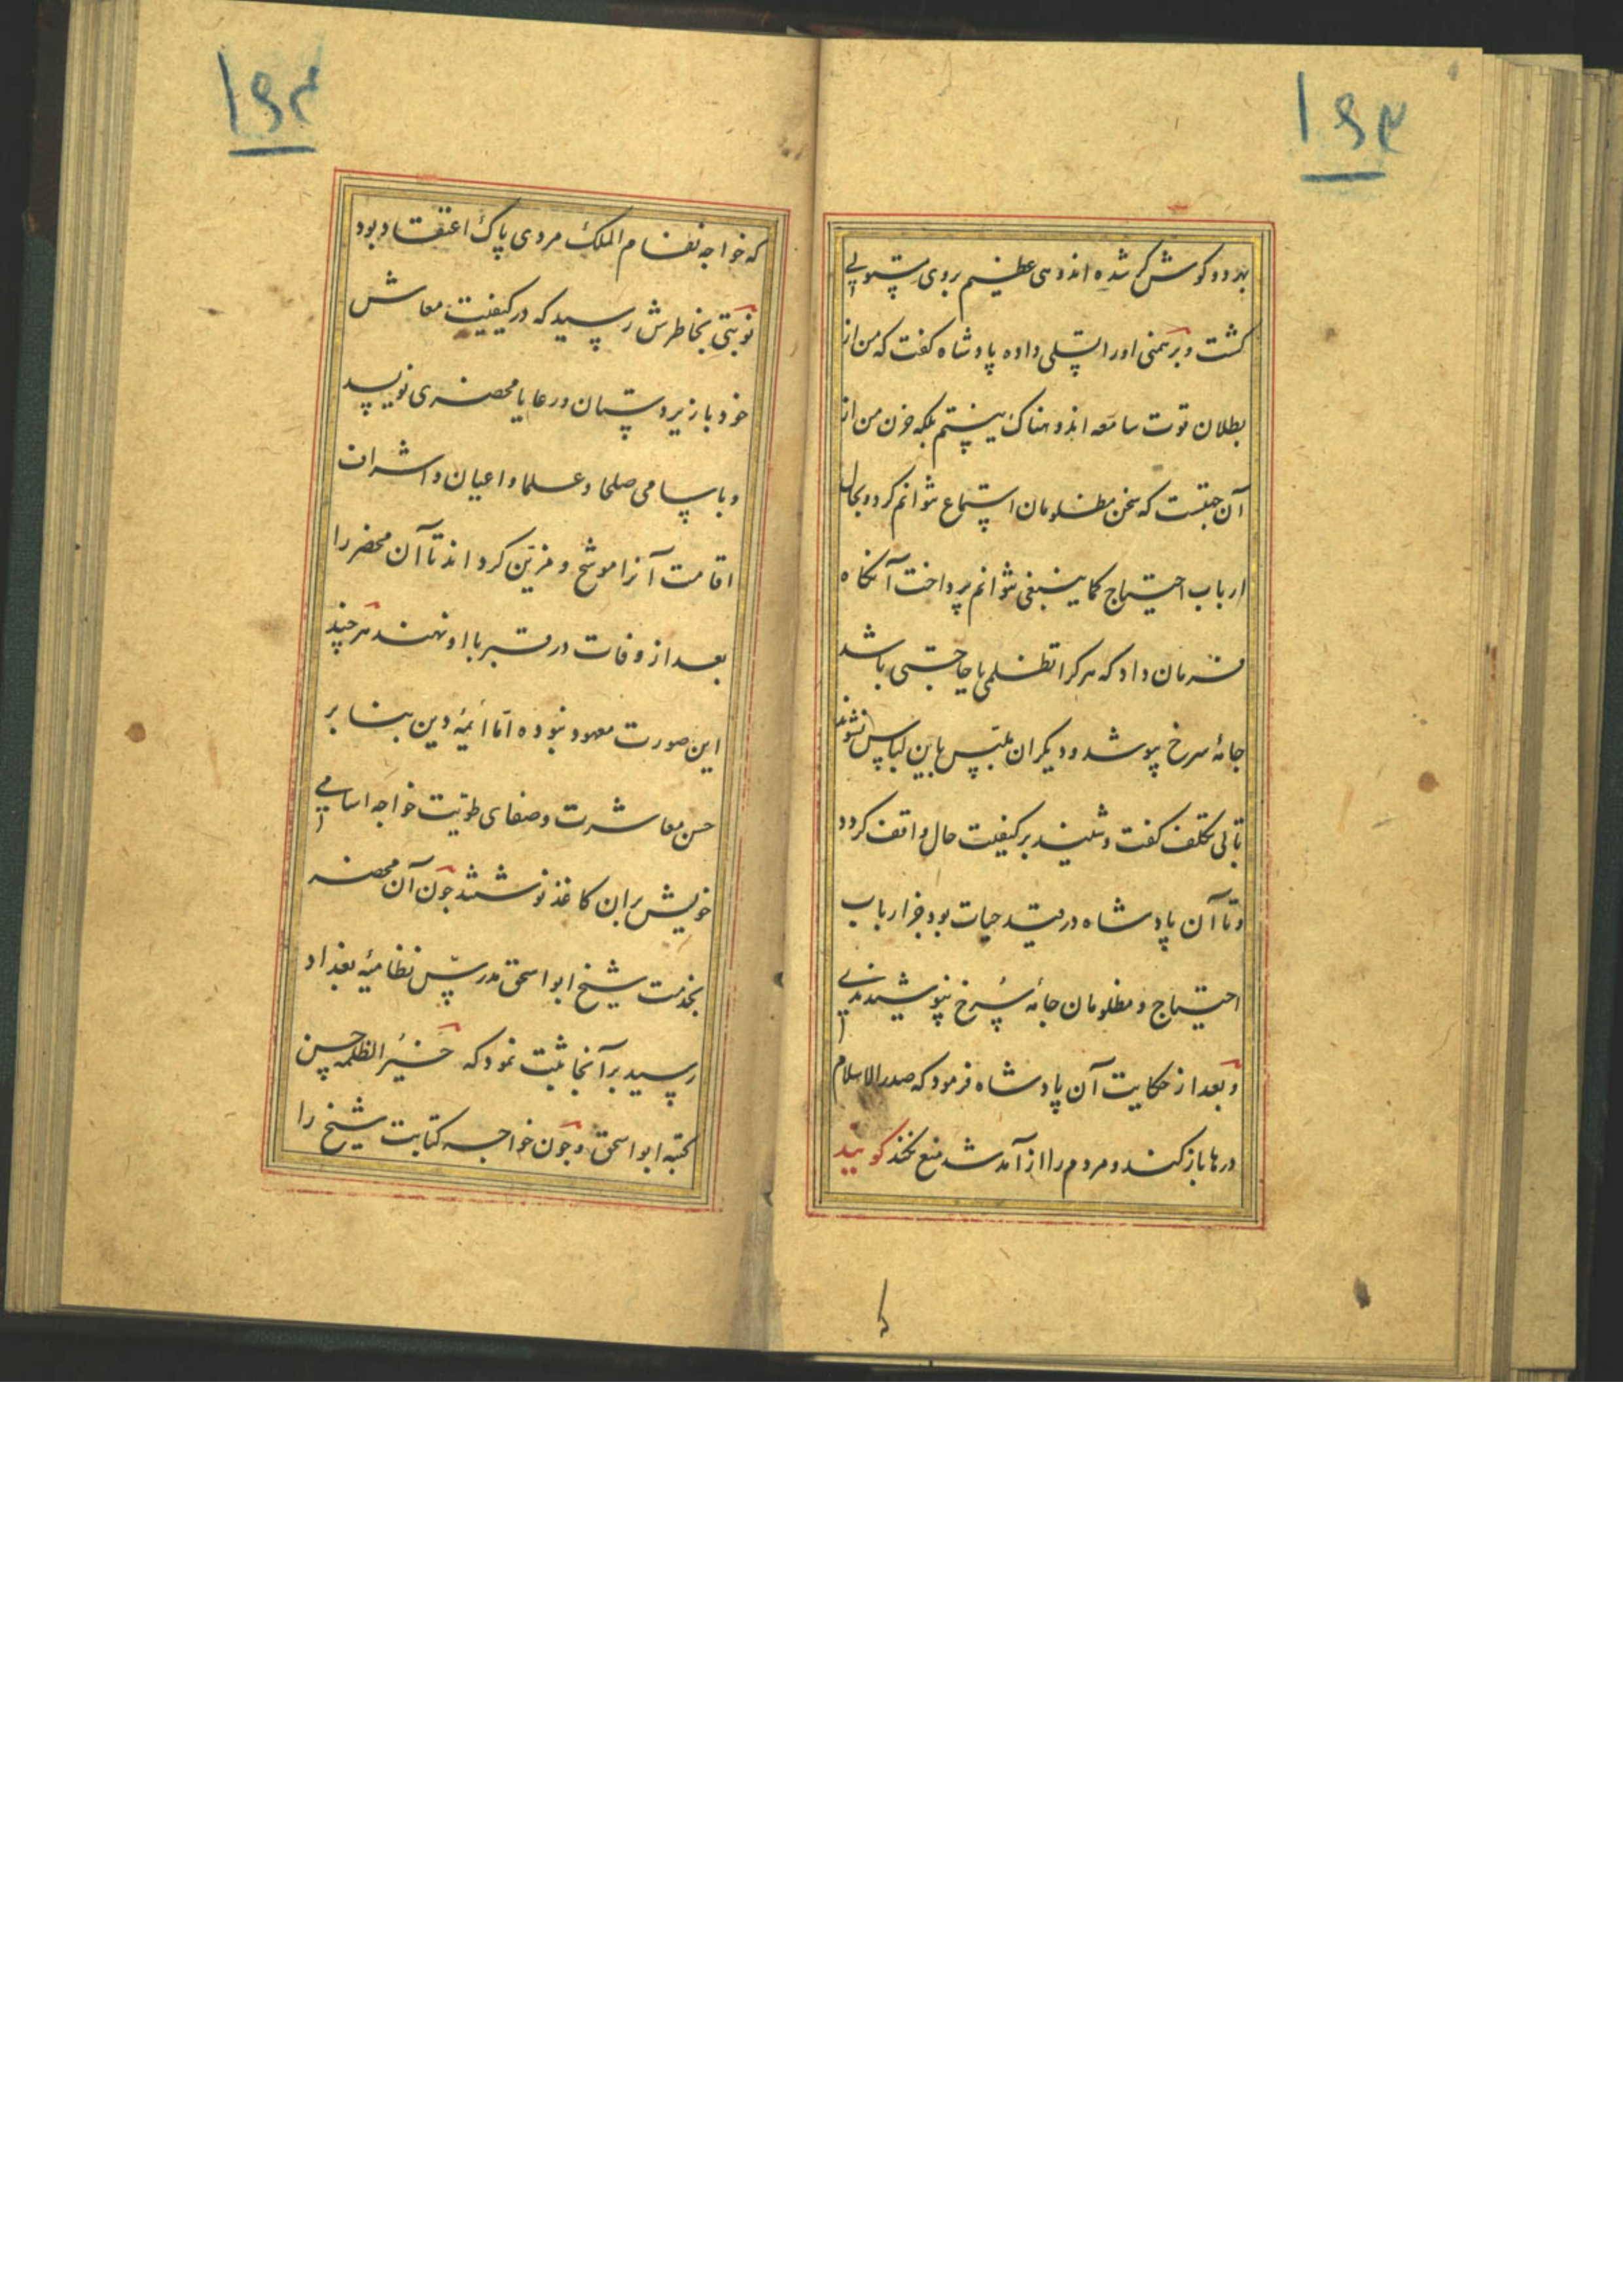 ۱۶۳
بهر دو کوش کر شده اندوهی عظیم بروی مستولی
کشت و برهمنی اورا تسلی داده پادشاه کفت که من از
بطلان قوت سامعه اندوهناک نیستم بلکه حزن من از
آن جهتست که سخن مظلومان استماع نتوانم کرد و بحال
ارباب احتیاج کما ینبغی نتوانم پرداخت آنکاه
فرمان داد که هر کرا تظلمی یا حاجتی باشد
جامهٔ سرخ پوشد و دیکران ملبس باین لباس نشوند
تا بی تکلف کفت و شنید بر کیفیت حال واقف کردد
و تا آن پادشاه در قید حیات بود جز ارباب
احتیاج و مظلومان جامهٔ سُرخ نپوشیدندی
و بعد از حکایت آن پادشاه فرمود که صدر الاسلام
درها باز کنند و مردم را از آمد شد منع نکند کویند
۱۶۴
که خواجه نظام الملک مردی پاک اعتقاد بود
نوبتی بخاطرش رسید که در کیفیت معاش
خود با زیردستان و رعایا محضری نویسد
و باسامی صلحا و علما و اعیان و اشراف
اقامت آنرا موشح و مزین کرداند تا آن محضر را
بعد از وفات در قبر با او نهند هر چند
این صورت معهود نبوده امّا ائمهٔ دین بنا بر
حسن معاشرت و صفای طویت خواجه اسامی
خویش بران کاغذ نوشتند چون آن محضر
بخدمت شیخ ابو اسحق مدرّس نظامیهٔ بغداد
رسید بر آنجا ثبت نمود که خَیْرُ الظلمه حسن
کتبه ابو اسحق و چون خواجه کتابت شیخ را